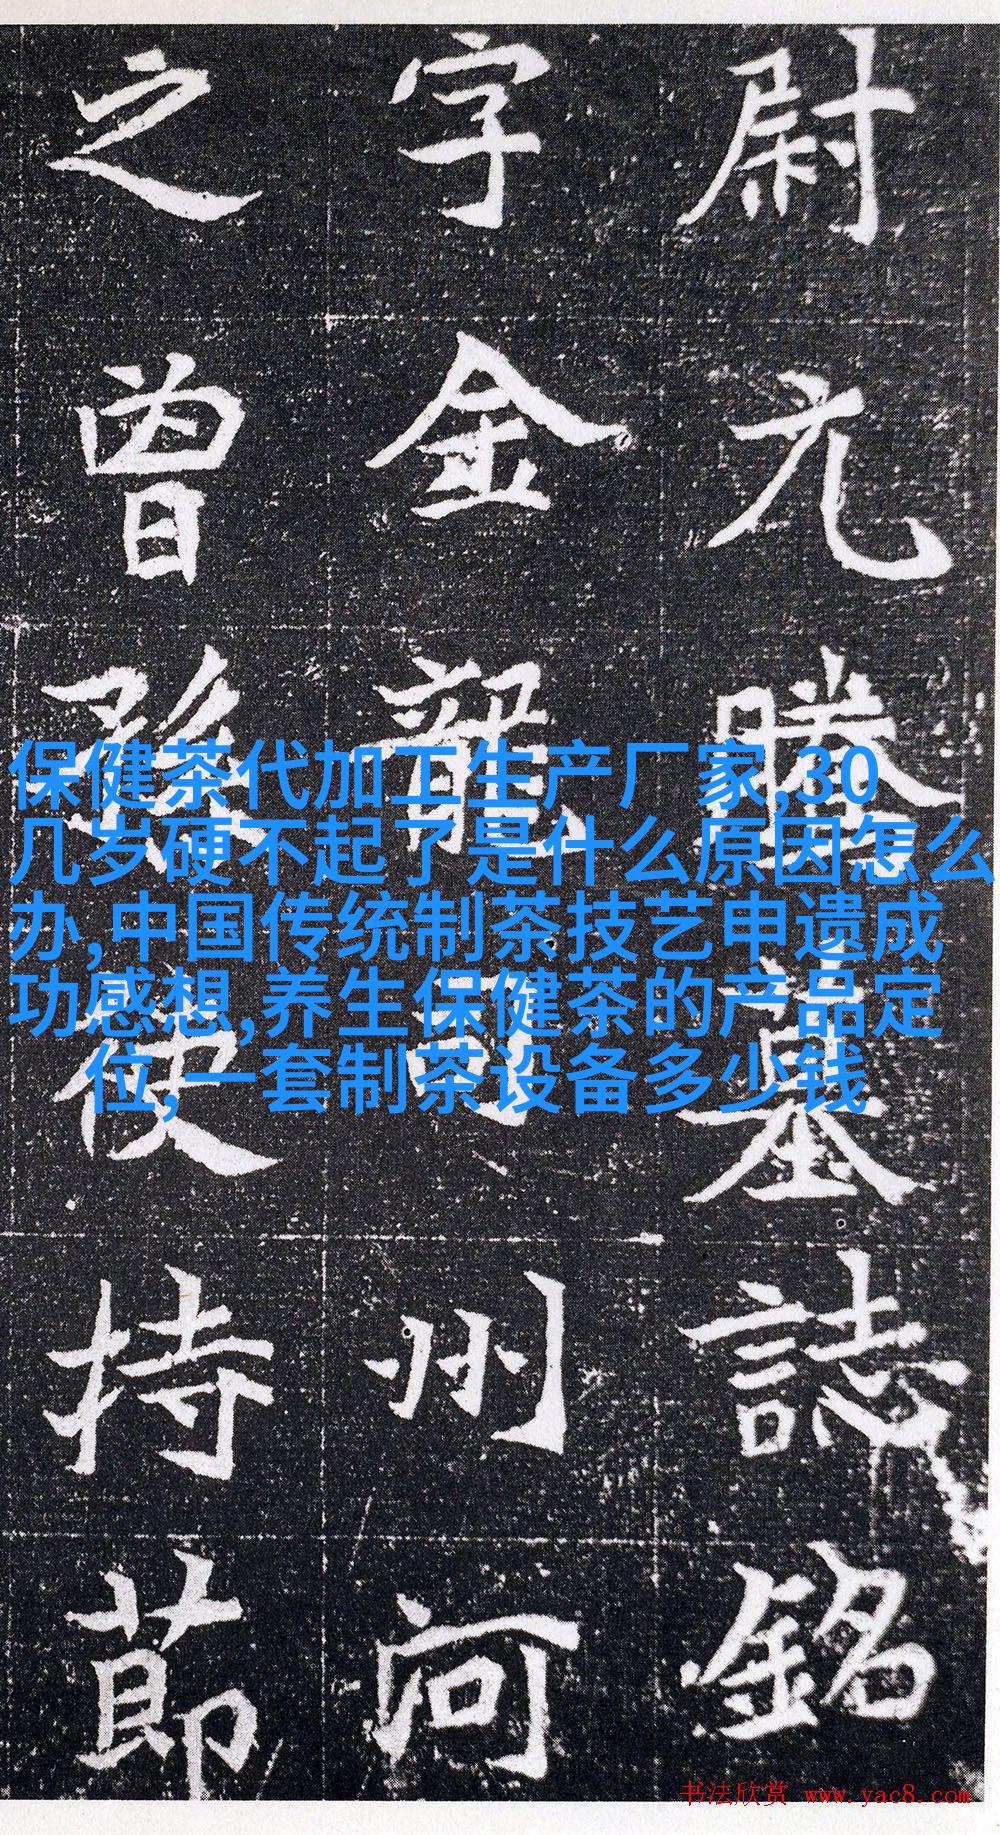 尉元騰墓誌銘
字金龍司州河
之曾孫使持節
保健茶代加工生产厂家,30
几岁硬不起了是什么原因怎么
办,中国传统制茶技艺申遗成
功感想,养生保健茶的产品定
位,一套制茶设备多少钱
书法欣赏 www.yac8.com